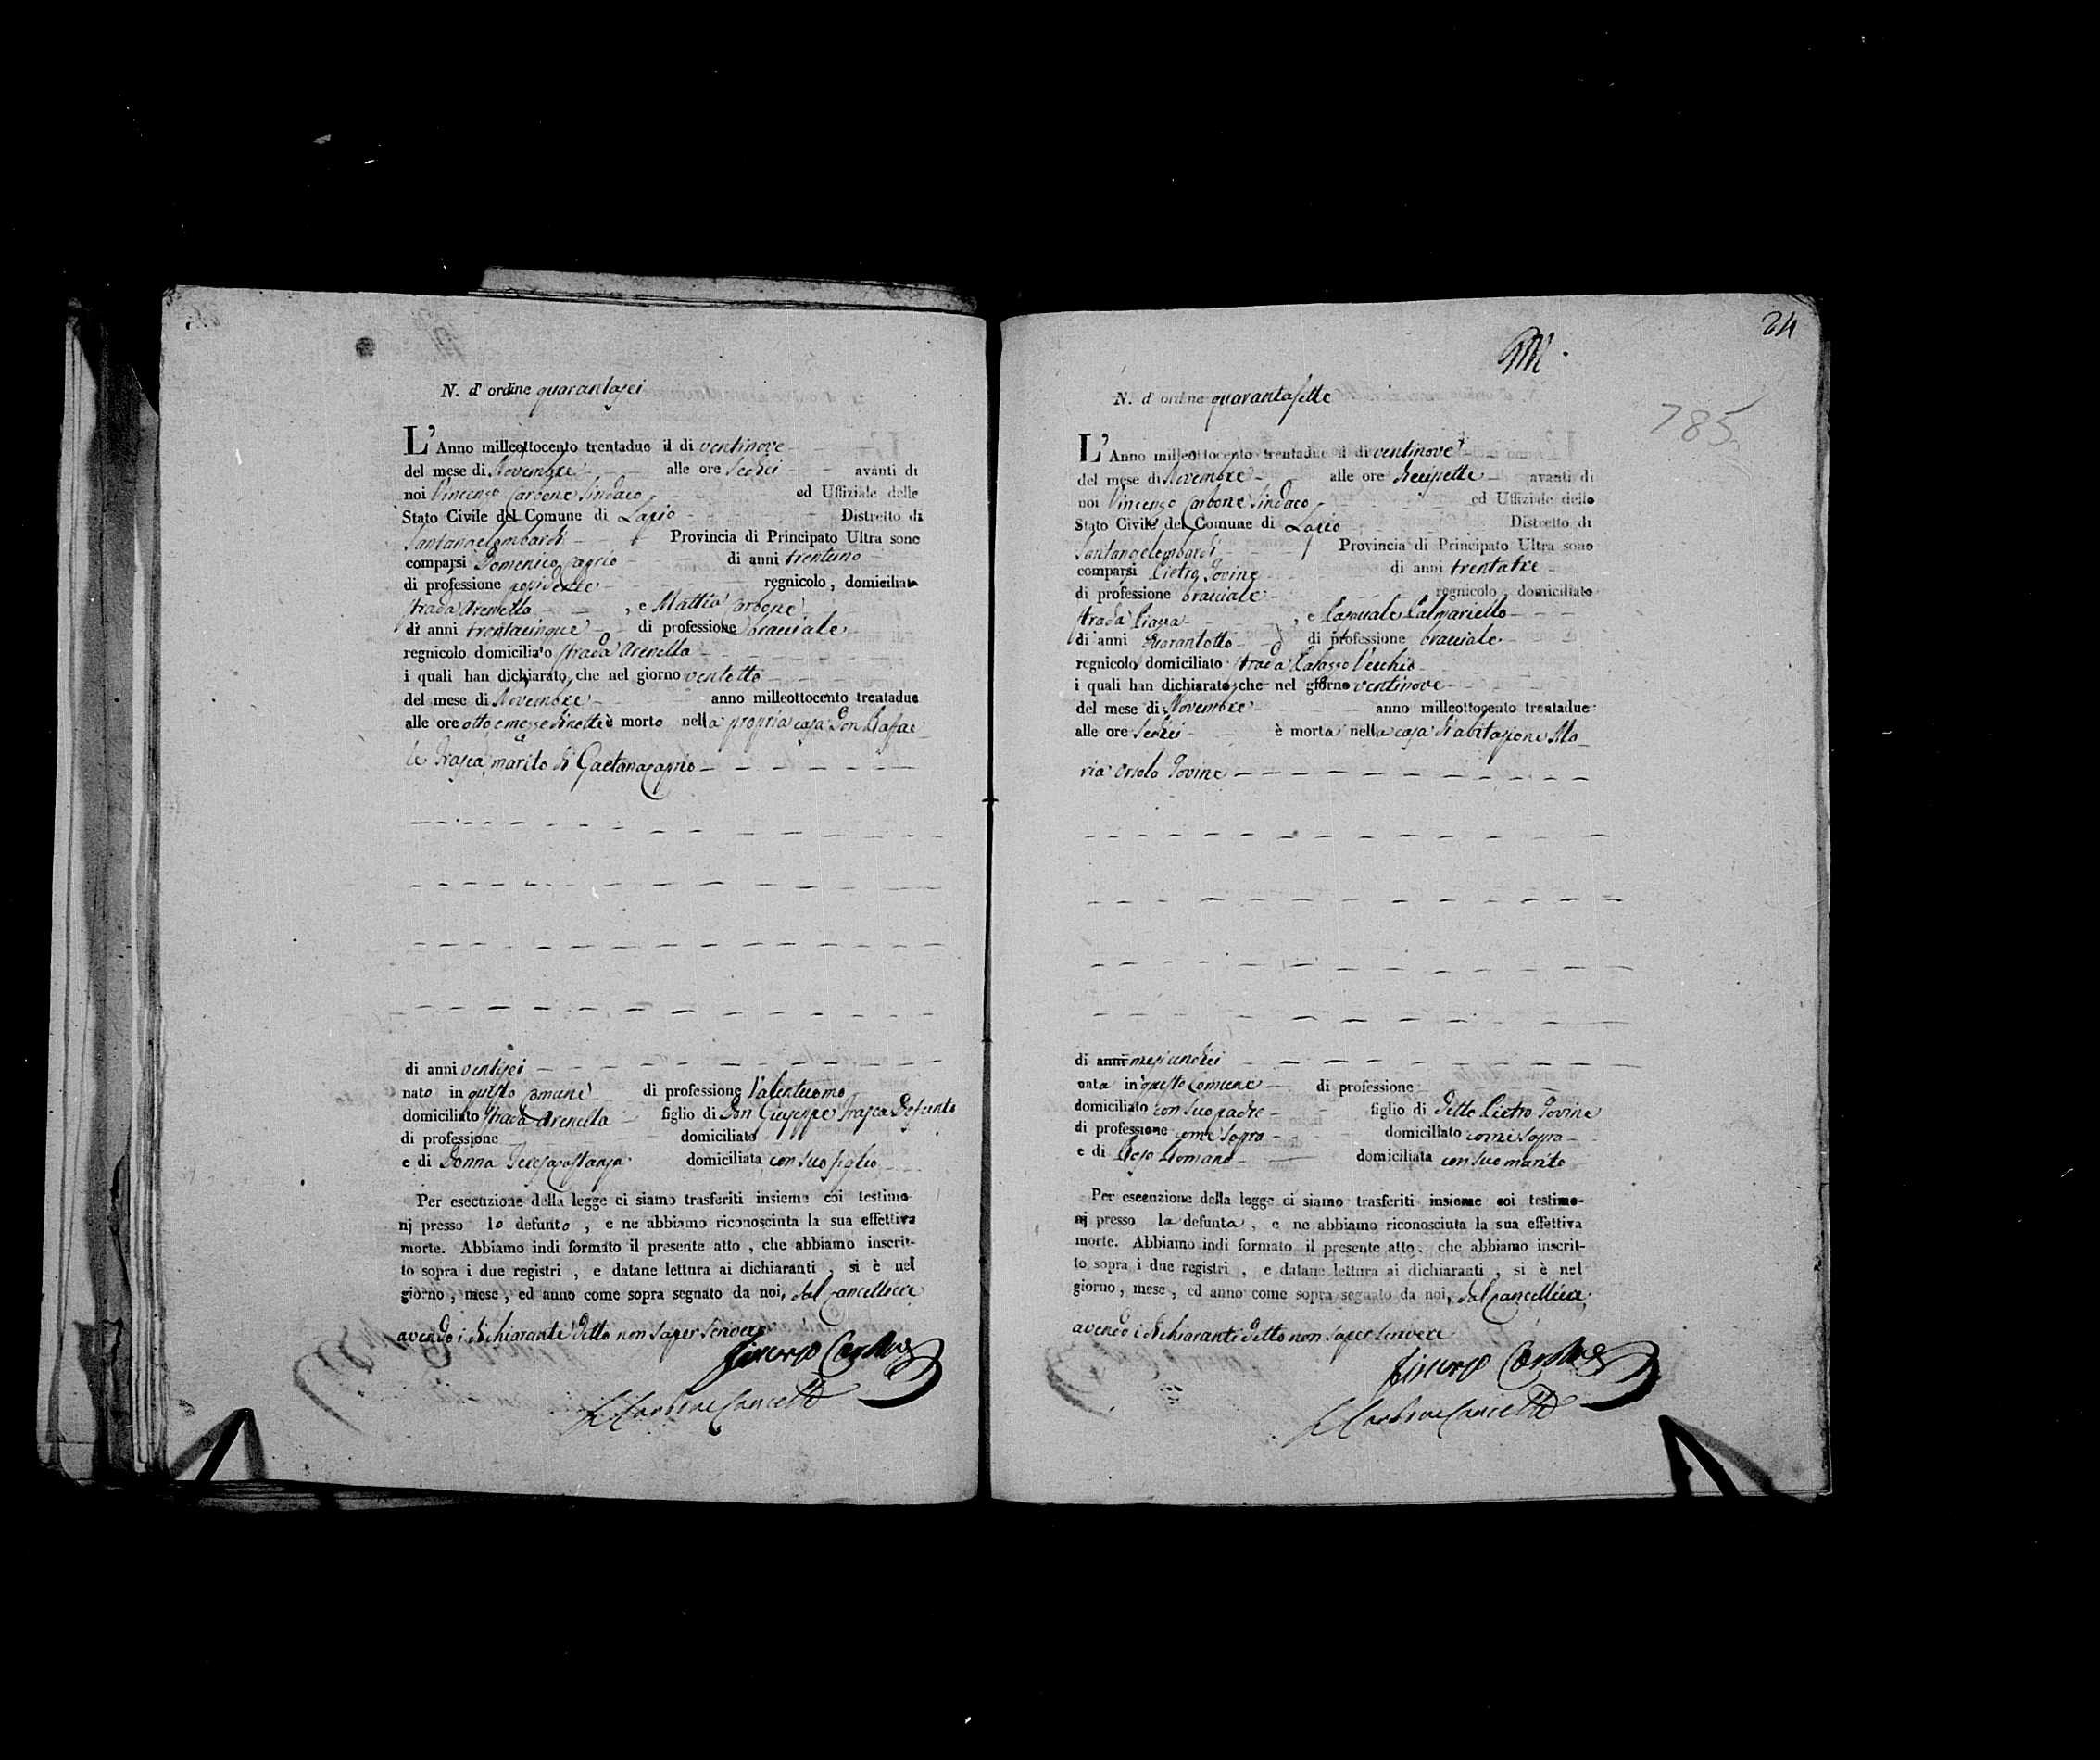 N. d' ordine quarantasei
L' Anno milleottocento trentadue il di ventinove
del mese di Novembre alle ore sedici avanti di
noi Vincenzo Carbone Sindaco ed Uffiziale dello
Stato Civile del Comune di Lapio Distretto di
Santangelombardi Provincia di Principato Ultra sono
comparsi Domenico Caprio di anni trentuno
di professione possidente regnicolo, domiciliato
strada Arenella, e Mattia Carbone
di anni trentacinque di professione bracciale
regnicolo domiciliato strada Arenella
i quali han dichiarato, che nel giorno ventotto
del mese di Novembre anno milleottocento trentadue
alle ore otto e mezze di notte è morto nella propria casa Don Raffae
le Trasca marito di Gaetana Caprio
di anni ventisei
nato in questo Comune di professione Valentuomo
domiciliato strada Arenella figlio di Don Giuseppe Trasca Defunto
di professione domiciliato
e di Donna Teresa Costanza domiciliata con suo figlio
Per esecuzione della legge ci siamo trasferiti insieme coi testimo-
nj presso lo defunto, e ne abbiamo riconosciuta la sua effettiva
morte. Abbiamo indi formato il presente atto, che abbiamo inscrit-
to sopra i due registri, e datane lettura ai dichiaranti, si è nel
giorno, mese, ed anno come sopra segnato da noi, dal Cancelliere
avendo i dichiaranti detto non saper scrivere
Vincenzo Carbone
Carbone Cancell.
24
785
N. d' ordine quarantasette
L' Anno milleottocento trentadue il di ventinove
del mese di Novembre alle ore diecisette avanti di
noi Vincenzo Carbone Sindaco ed Uffiziale dello
Stato Civile del Comune di Lapio Distretto di
Santangelombardi Provincia di Principato Ultra sono
comparsi Pietro Iovine di anni trentatre
di professione bracciale regnicolo, domiciliato
strada Piazza, e Pasquale Palmariello
di anni quarantotto di professione bracciale
regnicolo domiciliato strada Palazzo Vecchio
i quali han dichiarato, che nel giorno ventinove
del mese di Novembre anno milleottocento trentadue
alle ore sedici è morta nella casa d'abitazione Ma
ria Orsola Iovine
di anni mesi undici
nata in questo Comune di professione
domiciliato con suo padre figlio di detto Pietro Iovine
di professione come sopra domiciliato come sopra
e di Romano domiciliata con suo marito
Per esecuzione della legge ci siamo trasferiti insieme coi testimo-
nj presso la defunta, e ne abbiamo riconosciuta la sua effettiva
morte. Abbiamo indi formato il presente atto, che abbiamo inscrit-
to sopra i due registri, e datane lettura ai dichiaranti, si è nel
giorno, mese, ed anno come sopra segnato da noi, dal Cancelliere
avendo i dichiaranti detto non saper scrivere
Vincenzo Carbone
Carbone Cancell.